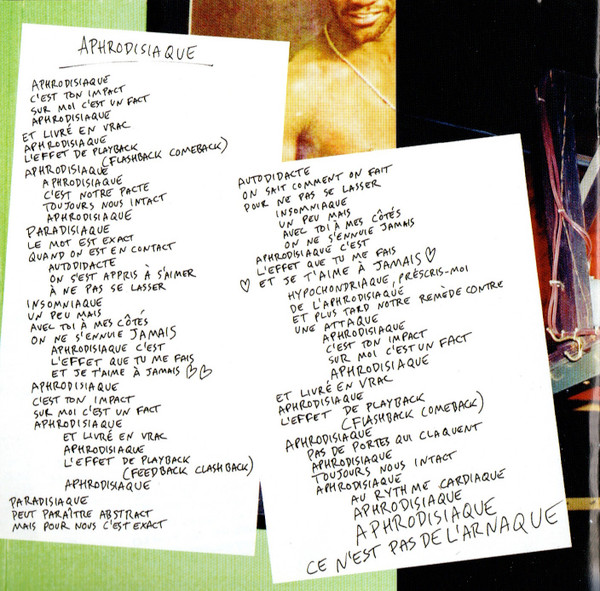 APHRODISIAQUE
APHRODISIAQUE
C'EST TON IMPACT
SUR MOI C'EST UN FACT
APHRODISIAQUE
ET LIVRÉ EN VRAC
APHRODISIAQUE
L'EFFET DE PLAYBACK
(FLASHBACK COMEBACK)
APHRODISIAQUE
APHRODISIAQUE
C'EST NOTRE PACTE
TOUJOURS NOUS INTACT
APHRODISIAQUE
PARADISIAQUE
LE MOT EST EXACT
QUAND ON EST EN CONTACT
AUTODIDACTE
ON S'EST APPRIS À S'AIMER
À NE PAS SE LASSER
INSOMNIAQUE
UN PEU MAIS
AVEC TOI À MES CÔTÉS
ON NE S'ENNUIE JAMAIS
APHRODISIAQUE C'EST
L'EFFET QUE TU ME FAIS
ET JE T'AIME À JAMAIS ♡♡
APHRODISIAQUE
C'EST TON IMPACT
SUR MOI C'EST UN FACT
APHRODISIAQUE
ET LIVRÉ EN VRAC
APHRODISIAQUE
L'EFFET DE PLAYBACK
(FEEDBACK CLASHBACK)
APHRODISIAQUE
PARADISIAQUE
PEUT PARAÎTRE ABSTRACT
MAIS POUR NOUS C'EST EXACT
AUTODIDACTE
ON SAIT COMMENT ON FAIT
POUR NE PAS SE LASSER
INSOMNIAQUE
UN PEU MAIS
AVEC TOI À MES CÔTÉS
ON NE S'ENNUIE JAMAIS
APHRODISIAQUE C'EST
L'EFFET QUE TU ME FAIS
♡ ET JE T'AIME À JAMAIS ♡
HYPOCHONDRIAQUE, PRÉSCRIS-MOI
DE L'APHRODISIAQUE
ET PLUS TARD NOTRE REMÈDE CONTRE
UNE ATTAQUE
APHRODISIAQUE
C'EST TON IMPACT
SUR MOI C'EST UN FACT
APHRODISIAQUE
ET LIVRÉ EN VRAC
APHRODISIAQUE
L'EFFET DE PLAYBACK
(FLASHBACK COMEBACK)
APHRODISIAQUE
PAS DE PORTES QUI CLAQUENT
APHRODISIAQUE
TOUJOURS NOUS INTACT
APHRODISIAQUE
AU RYTHME CARDIAQUE
APHRODISIAQUE
APHRODISIAQUE
CE N'EST PAS DE L'ARNAQUE